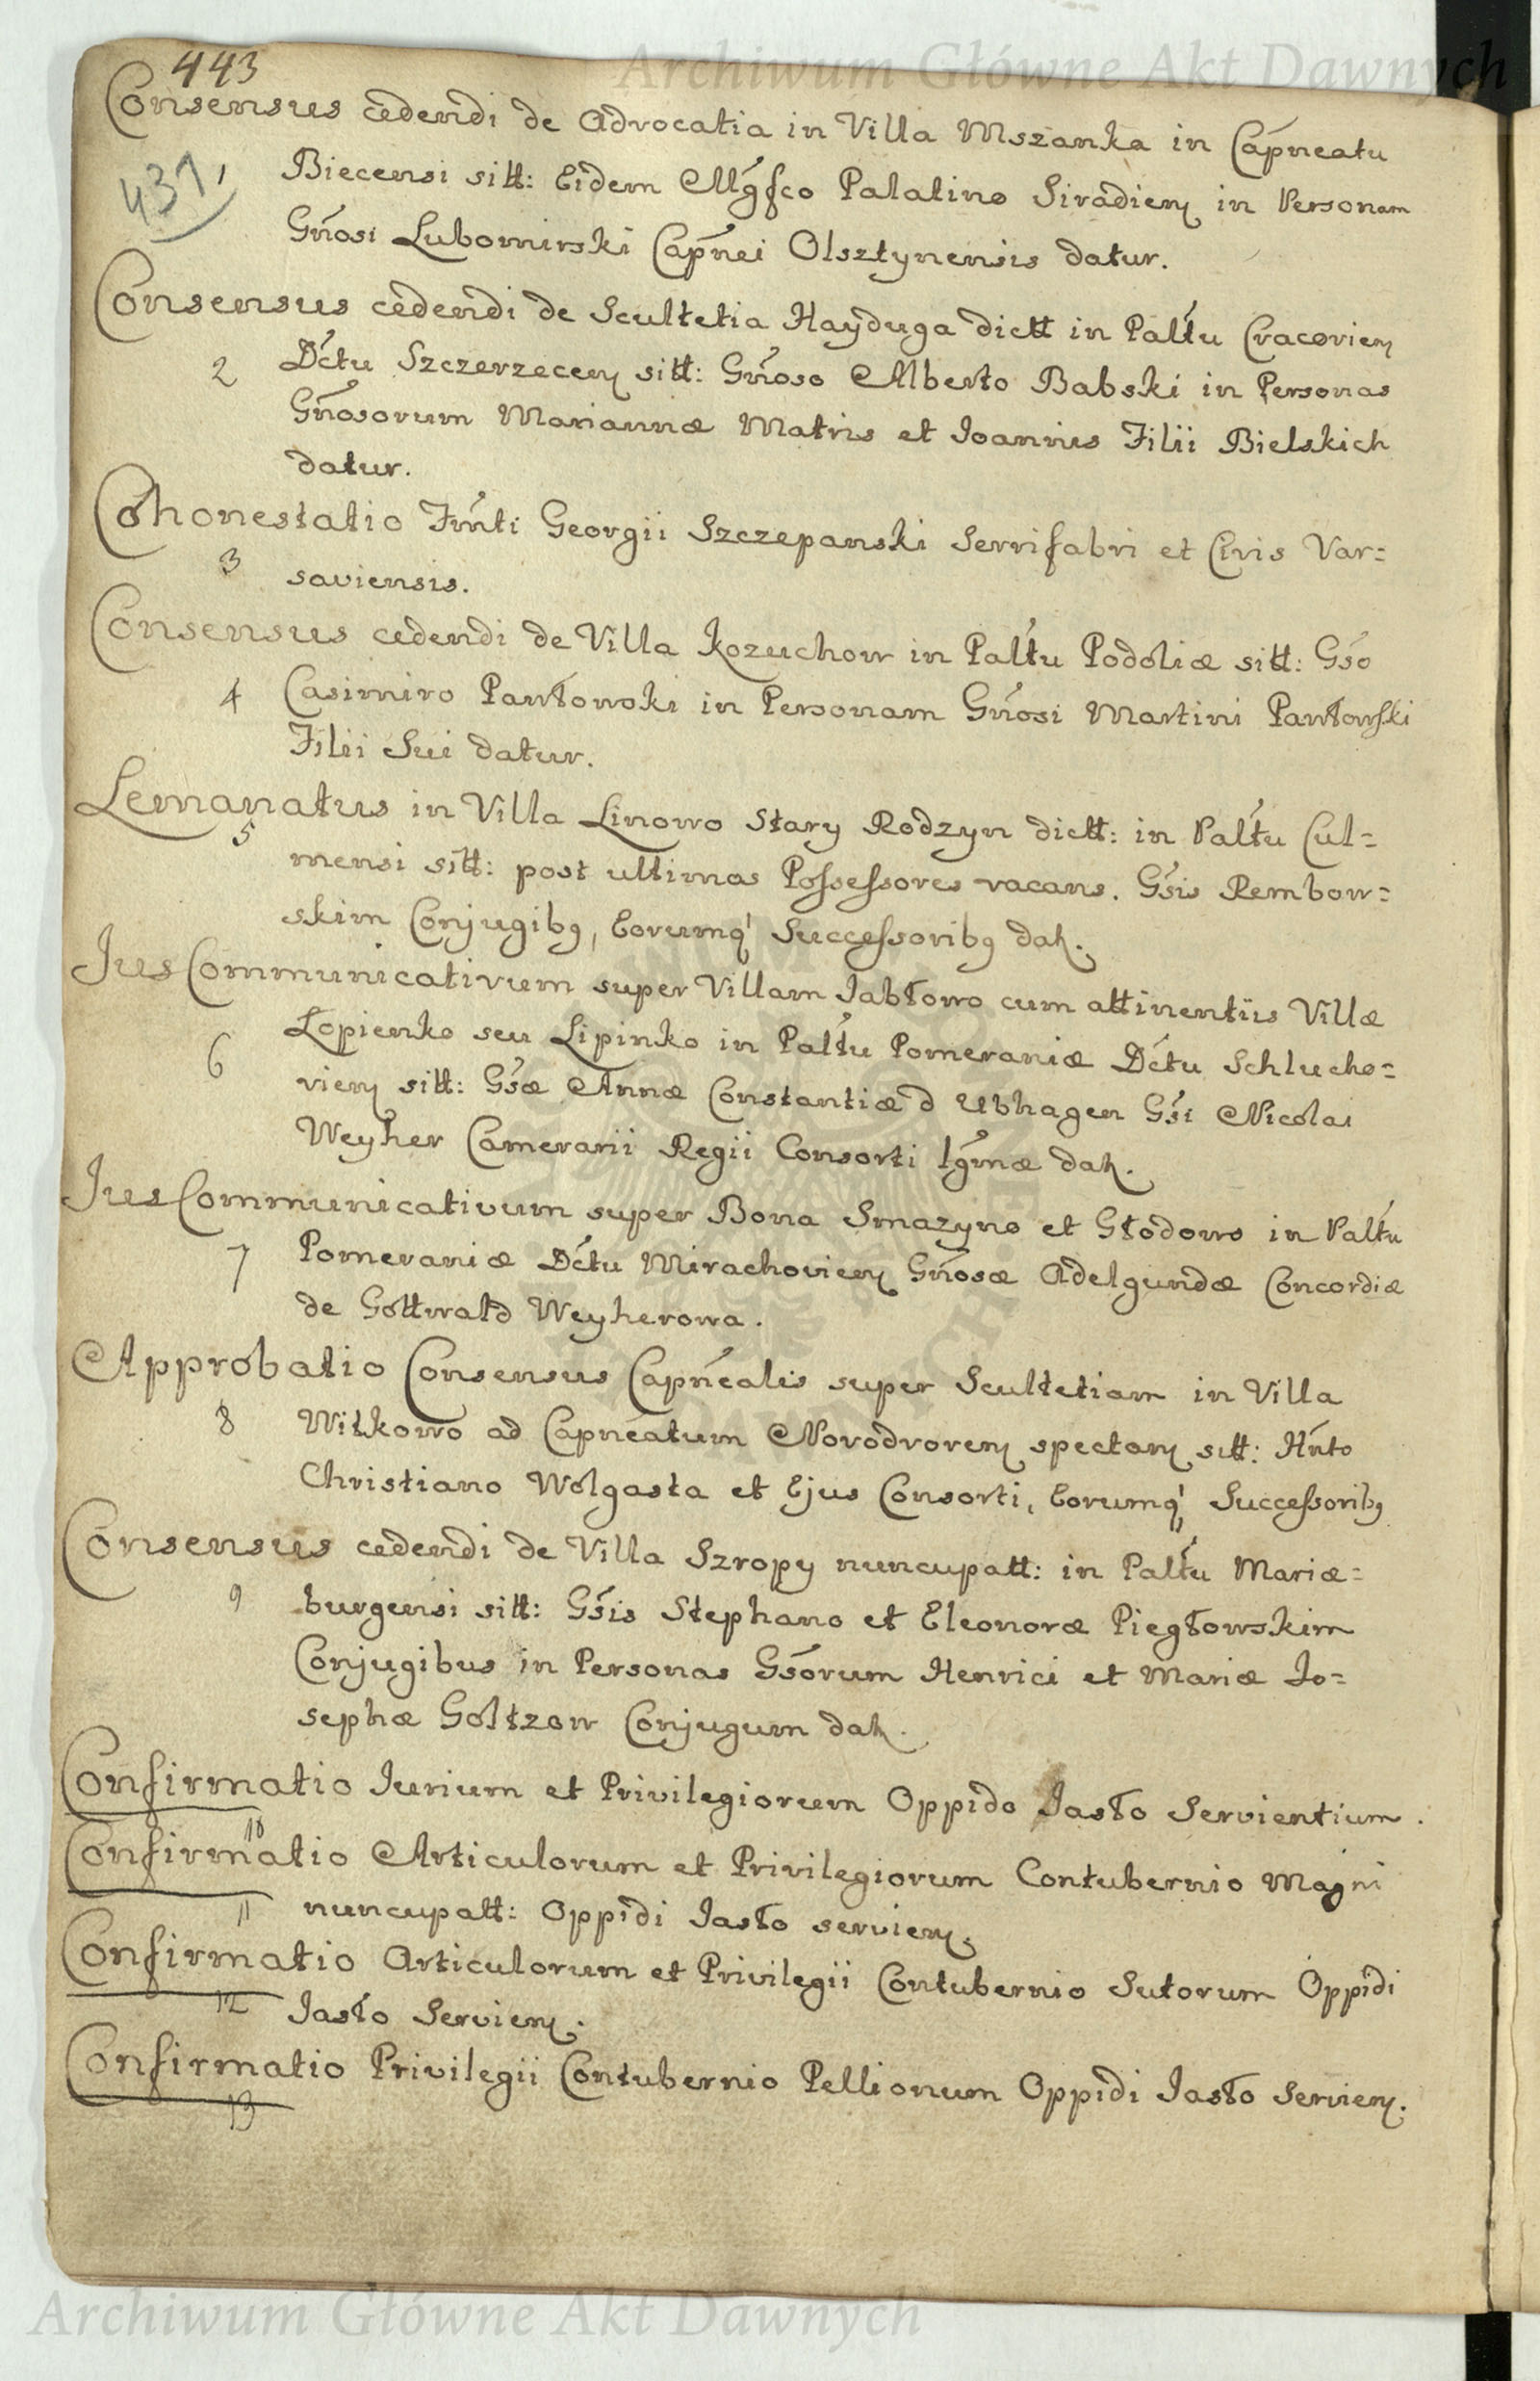 Archiwum Główne Akt Dawnych
443
Consensus cedendi de Advocatia in Villa Mszanka in Capneatu
431,
Biecensi sitt: Eidem Mgfco Palatino Siradien in Personam
Gnosi Lubomirski Capnei Olsztynensis datur.
Consensus cedendi de Scultetia Hayduga dictt in Paltu Cracovien
2 Dctu Szczerzecen sitt: Gnoso Alberto Babski in Personas
Gnosorum Mariannæ Matris et Joannis Filii Bielskich
datur.
Cohonestatio Fmti Georgii Szczepanski Serrifabri et Civis Var=
3 saviensis.
Consensus cedendi de Villa Kozuchow in Paltu Podoliæ sitt: Gso
4 Casimiro Pawłowski in Personam Gnosi Martini Pawłowski
Filii Sui datur.
Lemanatus in Villa Linowo Stary Rodzyn dictt: in Paltu Cul=
5 mensi sitt: post ultimos Possessores vacans. Gsis Rembow=
skim Conjugibg, Eorumq' Successoribg dat.
Jus Communicativum super Villam Jabłowo cum attinentiis Villæ
6 Łopienko seu Lipinko in Paltu Pomeraniæ Dctu Schlucho=
vien sitt: Gsæ Annæ Constantiæ d Ubhagen Gsi Nicolai
Weyher Camerarii Regii Consorti lgmæ dat.
Jus Communicativum super Bona Smazyno et Głodowo in Paltu
7 Pomeraniæ Dctu Mirachovien Gnosæ Adelgundæ Concordiæ
de Gottwald Weyherowa.
Approbatio Consensus Capnealis super Scultetiam in Villa
8 Witkowo ad Capneatum Novodvoren spectan sitt: Hnto
Christiano Wolgasta et Ejus Consorti, Eorumq' Successoribg
Consensus cedendi de Villa Szropy nuncupatt: in Paltu Mariæ=
9 burgensi sitt: Gsis Stephano et Eleonoræ Piegłowskim
Conjugibus in Personas Gsorum Henrici et Mariæ Jo=
sephæ Goltzow Conjugum dat.
Confirmatio Jurium et Privilegiorum Oppido Jasło Servientium.
10
Confirmatio Articulorum et Privilegiorum Contubernio Magni
11 nuncupatt: Oppidi Jasło servien.
Confirmatio Articulorum et Privilegii Contubernio Sutorum Oppidi
12 Jasło Servien.
Confirmatio Privilegii Contubernio Pellionum Oppidi Jasło Servien.
13
Archiwum Główne Akt Dawnych